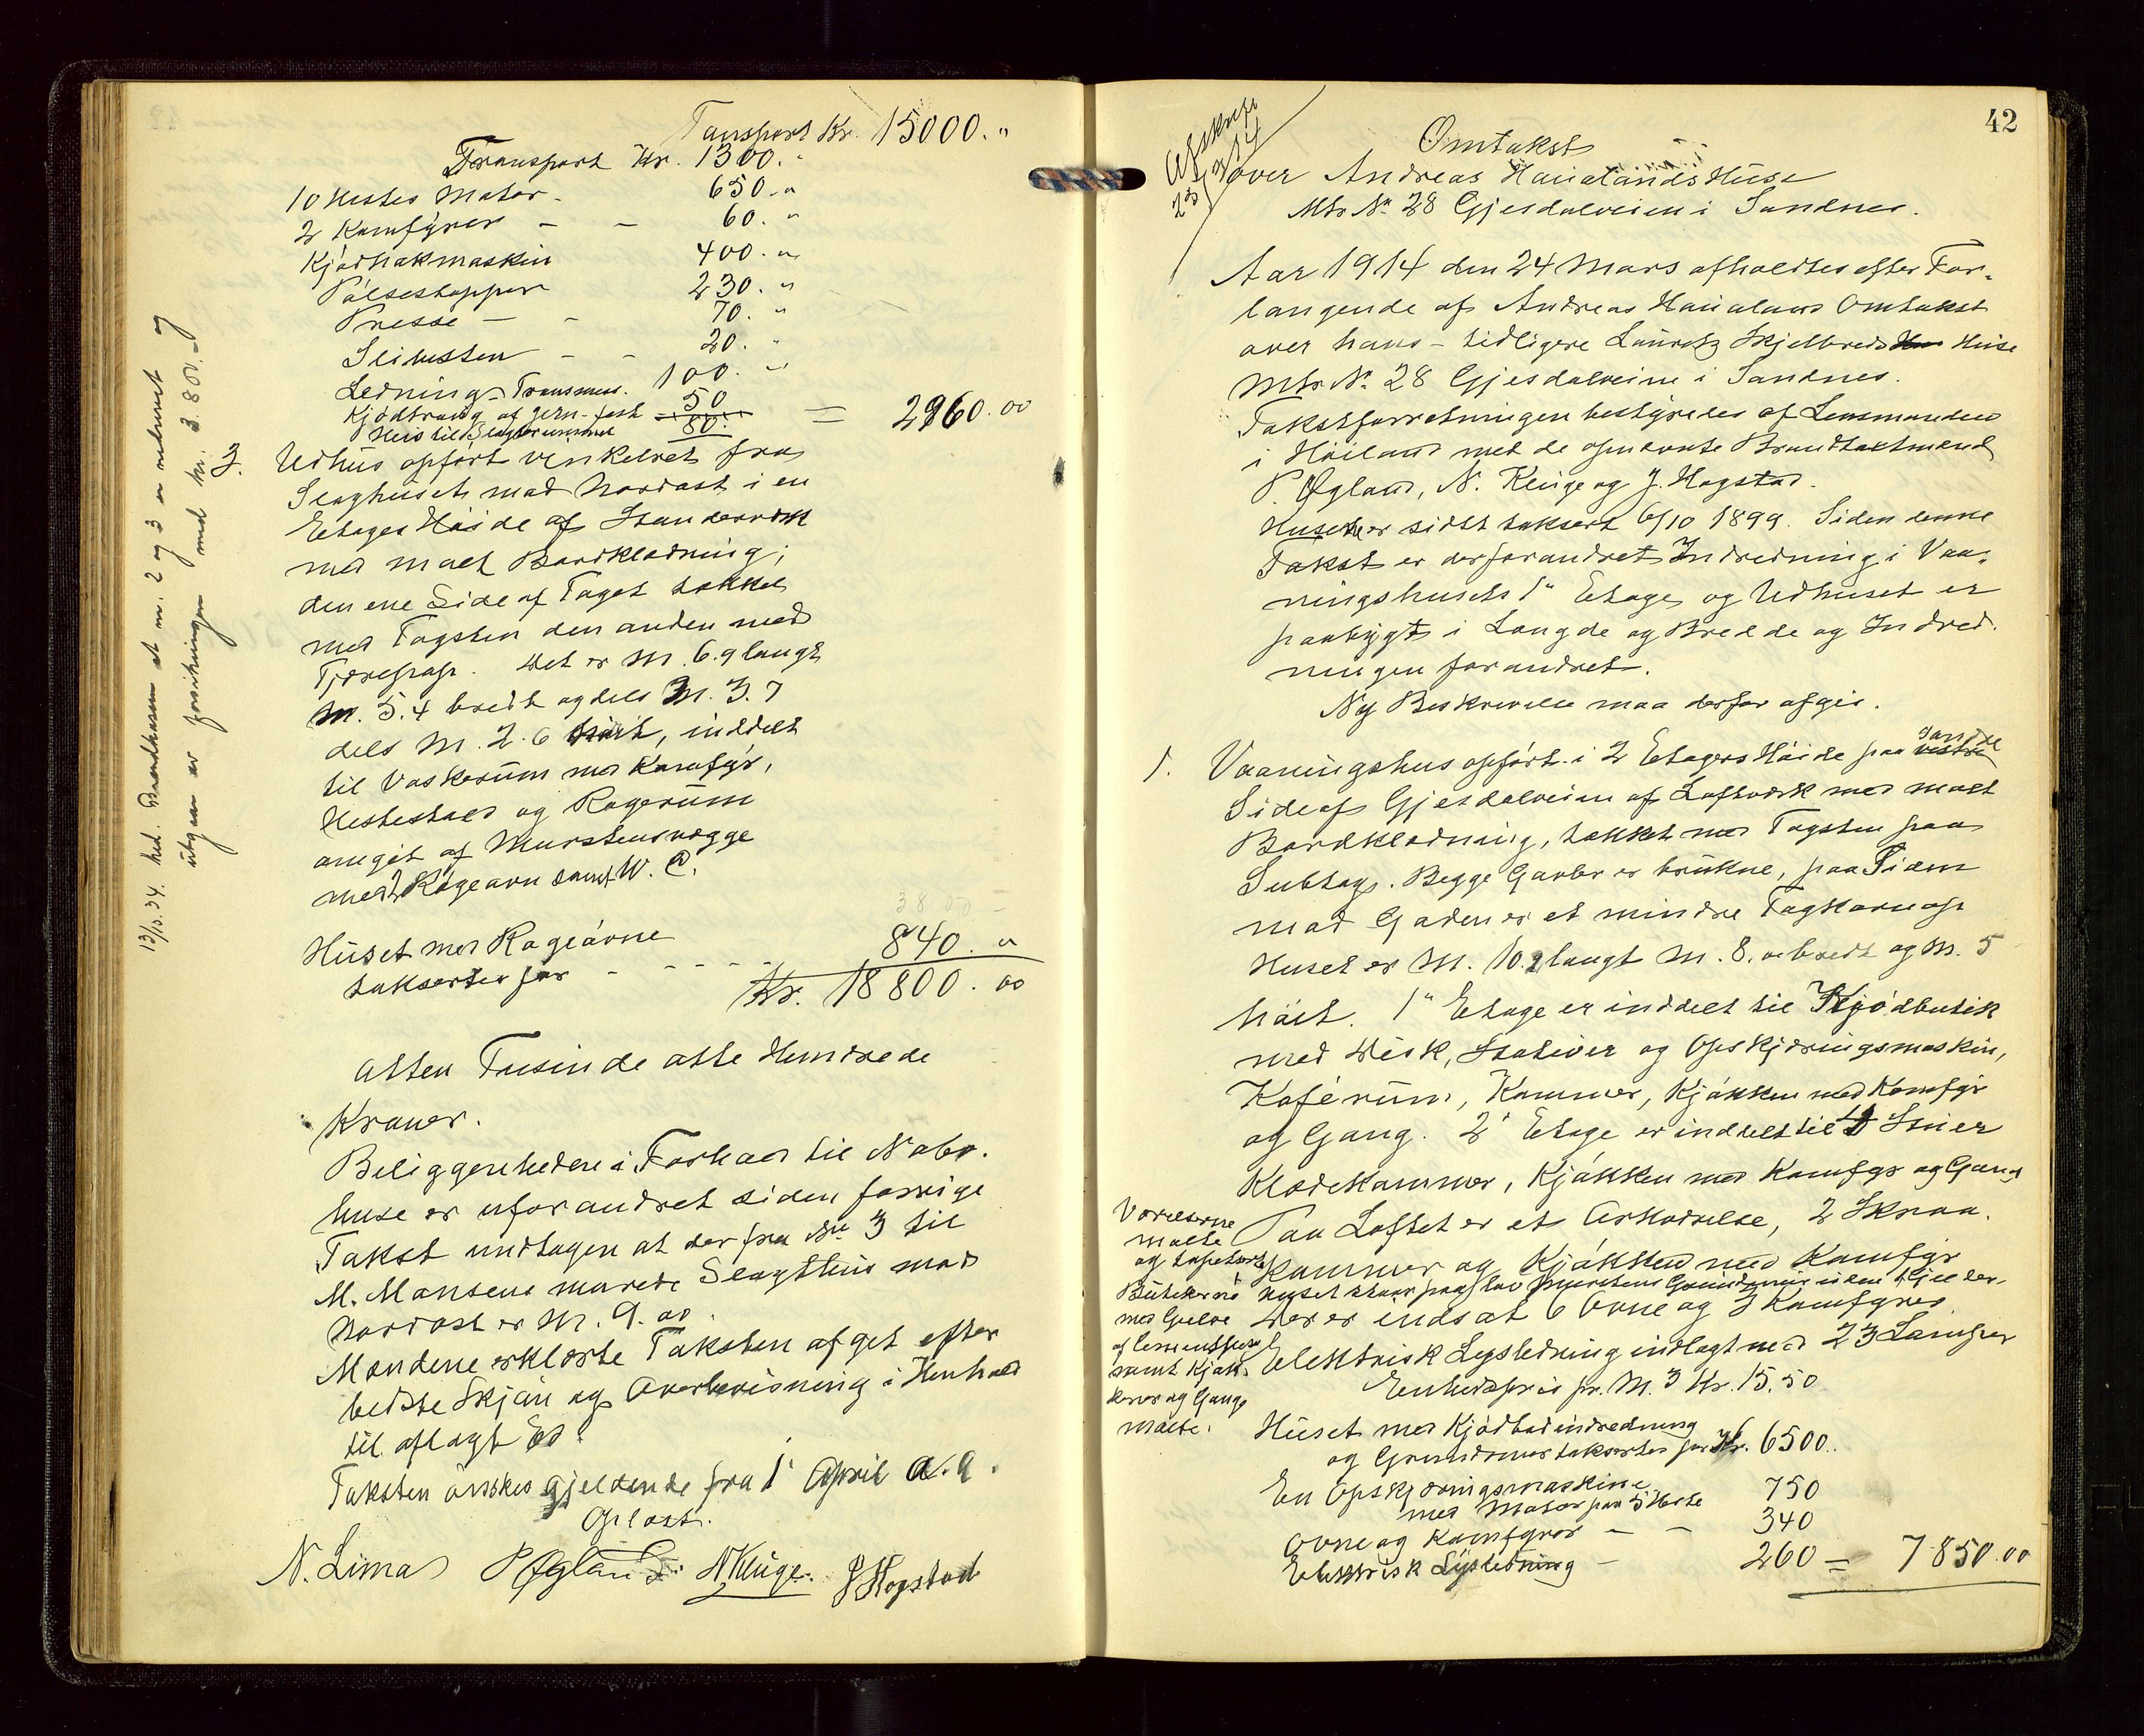 Transport Kr. 15000. "
Transport Kr. 1300. "
10 Hestes Motor - 650. "
2 Komfyrer - - 60. "
Kjødhakmaskin 400. "
Pølsestopper 230. "
Presse - - 70. "
Slibesten - - 20. "
Ledning - Transmis. 100. "
Kjødtraug af jern - fast 50
Heis til Slagterummet 80. = 2960.00
3. Udhus opført vinkelret fra
Slaghuset mod Nordost i en
Etages Høide af Stenderverk
med malt Bordklædning;
den ene Side af Taget tækket
med Tagsten den anden med
Tjærepap. Det er M. 6.9 langt
M. 5.4 bredt og dels M. 3.7
dels M. 2.6 høit, inddelt
til Vaskerum med Komfyr,
Hestestald og Røgerum
omgit af Murstensvægge
med 2 Røgeovn samt W.C.
3800 -
Huset med Røgeovne
takseres for - - - - - 840. "
Kr. 18800.00
Atten Tusinde otte Hundrede
Kroner.
Beliggenheden i Forhold til Nabo-
huse er uforandret siden forrige
Takst undtagen at der fra No 3 til
M. Monsens murede Slagthus mod
Nordost er M. 9.00.
Mændene erklærte Taksten afget efter
bedste Skjøn og Overbevisning i Henhold
til aflagt Ed.
Taksten ønskes gjeldende fra 1' April d.A.
Oplæst.
N. Lima P Øgland N Kluge. J Hogstad
13/10.34. hed. Brandkassen at nr. 2 og 3 er nedrevet og
utgaar er forsikringen med kr. 3.800.-
42
Afskrift
25/3 14
Omtakst
over Andreas Haualands Huse
Mtr No 28 Gjesdalveien i Sandnes.
Aar 1914 den 24 Mars afholdtes efter For-
langende af Andreas Haualand Omtakst
over hans - tidligere Lauretz Skjelbreds Huse
Mtr. No 28 Gjesdalveien i Sandnes.
Takstforretningen bestyredes af Lensmanden
i Høiland med de opnævnte Brandtakstmænd
P. Øgland, N. Kluge og J. Hogstad.
Husene er sidst taksert 6/10 1899. Siden denne
Takst er der forandret Indredning i Vaa-
ningshusets 1" Etage og Udhuset er
paabygt i Længde og Bredde og Indred-
ningen forandret.
Ny Beskrivelse maa derfor afgis.
1. Vaaningshus opført i 2 Etagers Høide paa søndre
Side af Gjesdalveien af Laftverk med malt
Bordklædning, tækket med Tagsten paa
Subtag. Begge Gavler er brukne, paa Siden
mod Gaden er et mindre Tagkarnap
Huset er M. 10.2 langt M. 8. " bredt og M. 5
høit. 1" Etage er inddelt til Kjødbutik
med Disk, Stativer og Opskjæringsmaskin,
Kaférum, Kammer, Kjøkken med Komfyr
og Gang. 2' Etage er inddelt til Stuer
Klædekammer, Kjøkken med Komfyr og Gang
Paa Loftet er et Arkværelse, 2 Skraa-
kammer og Kjøkken med Komfyr
Huset staar paa lav Murstens Grundmur uden Kjelder.
Der er indsat 6 Ovne og 3 Komfyrer.
Elektrisk Lysledning indlagt med 23 Lamper
Enhedspris pr. M. 3 Kr. 15.50
Værelserne
malte
og tapetsert
Butikerne
med Gulve
af Cementfliser
samt Kjøk-
kener og Gange
malte.
Huset med Kjødbodindredning
og Grundmur takseres for Kr. 6500.
En Opskjæringsmaskine
med Motor paa 5 Heste 750
Ovne og Komfyrer - - 340
Elektrisk Lysledning - 260 = 7850.00